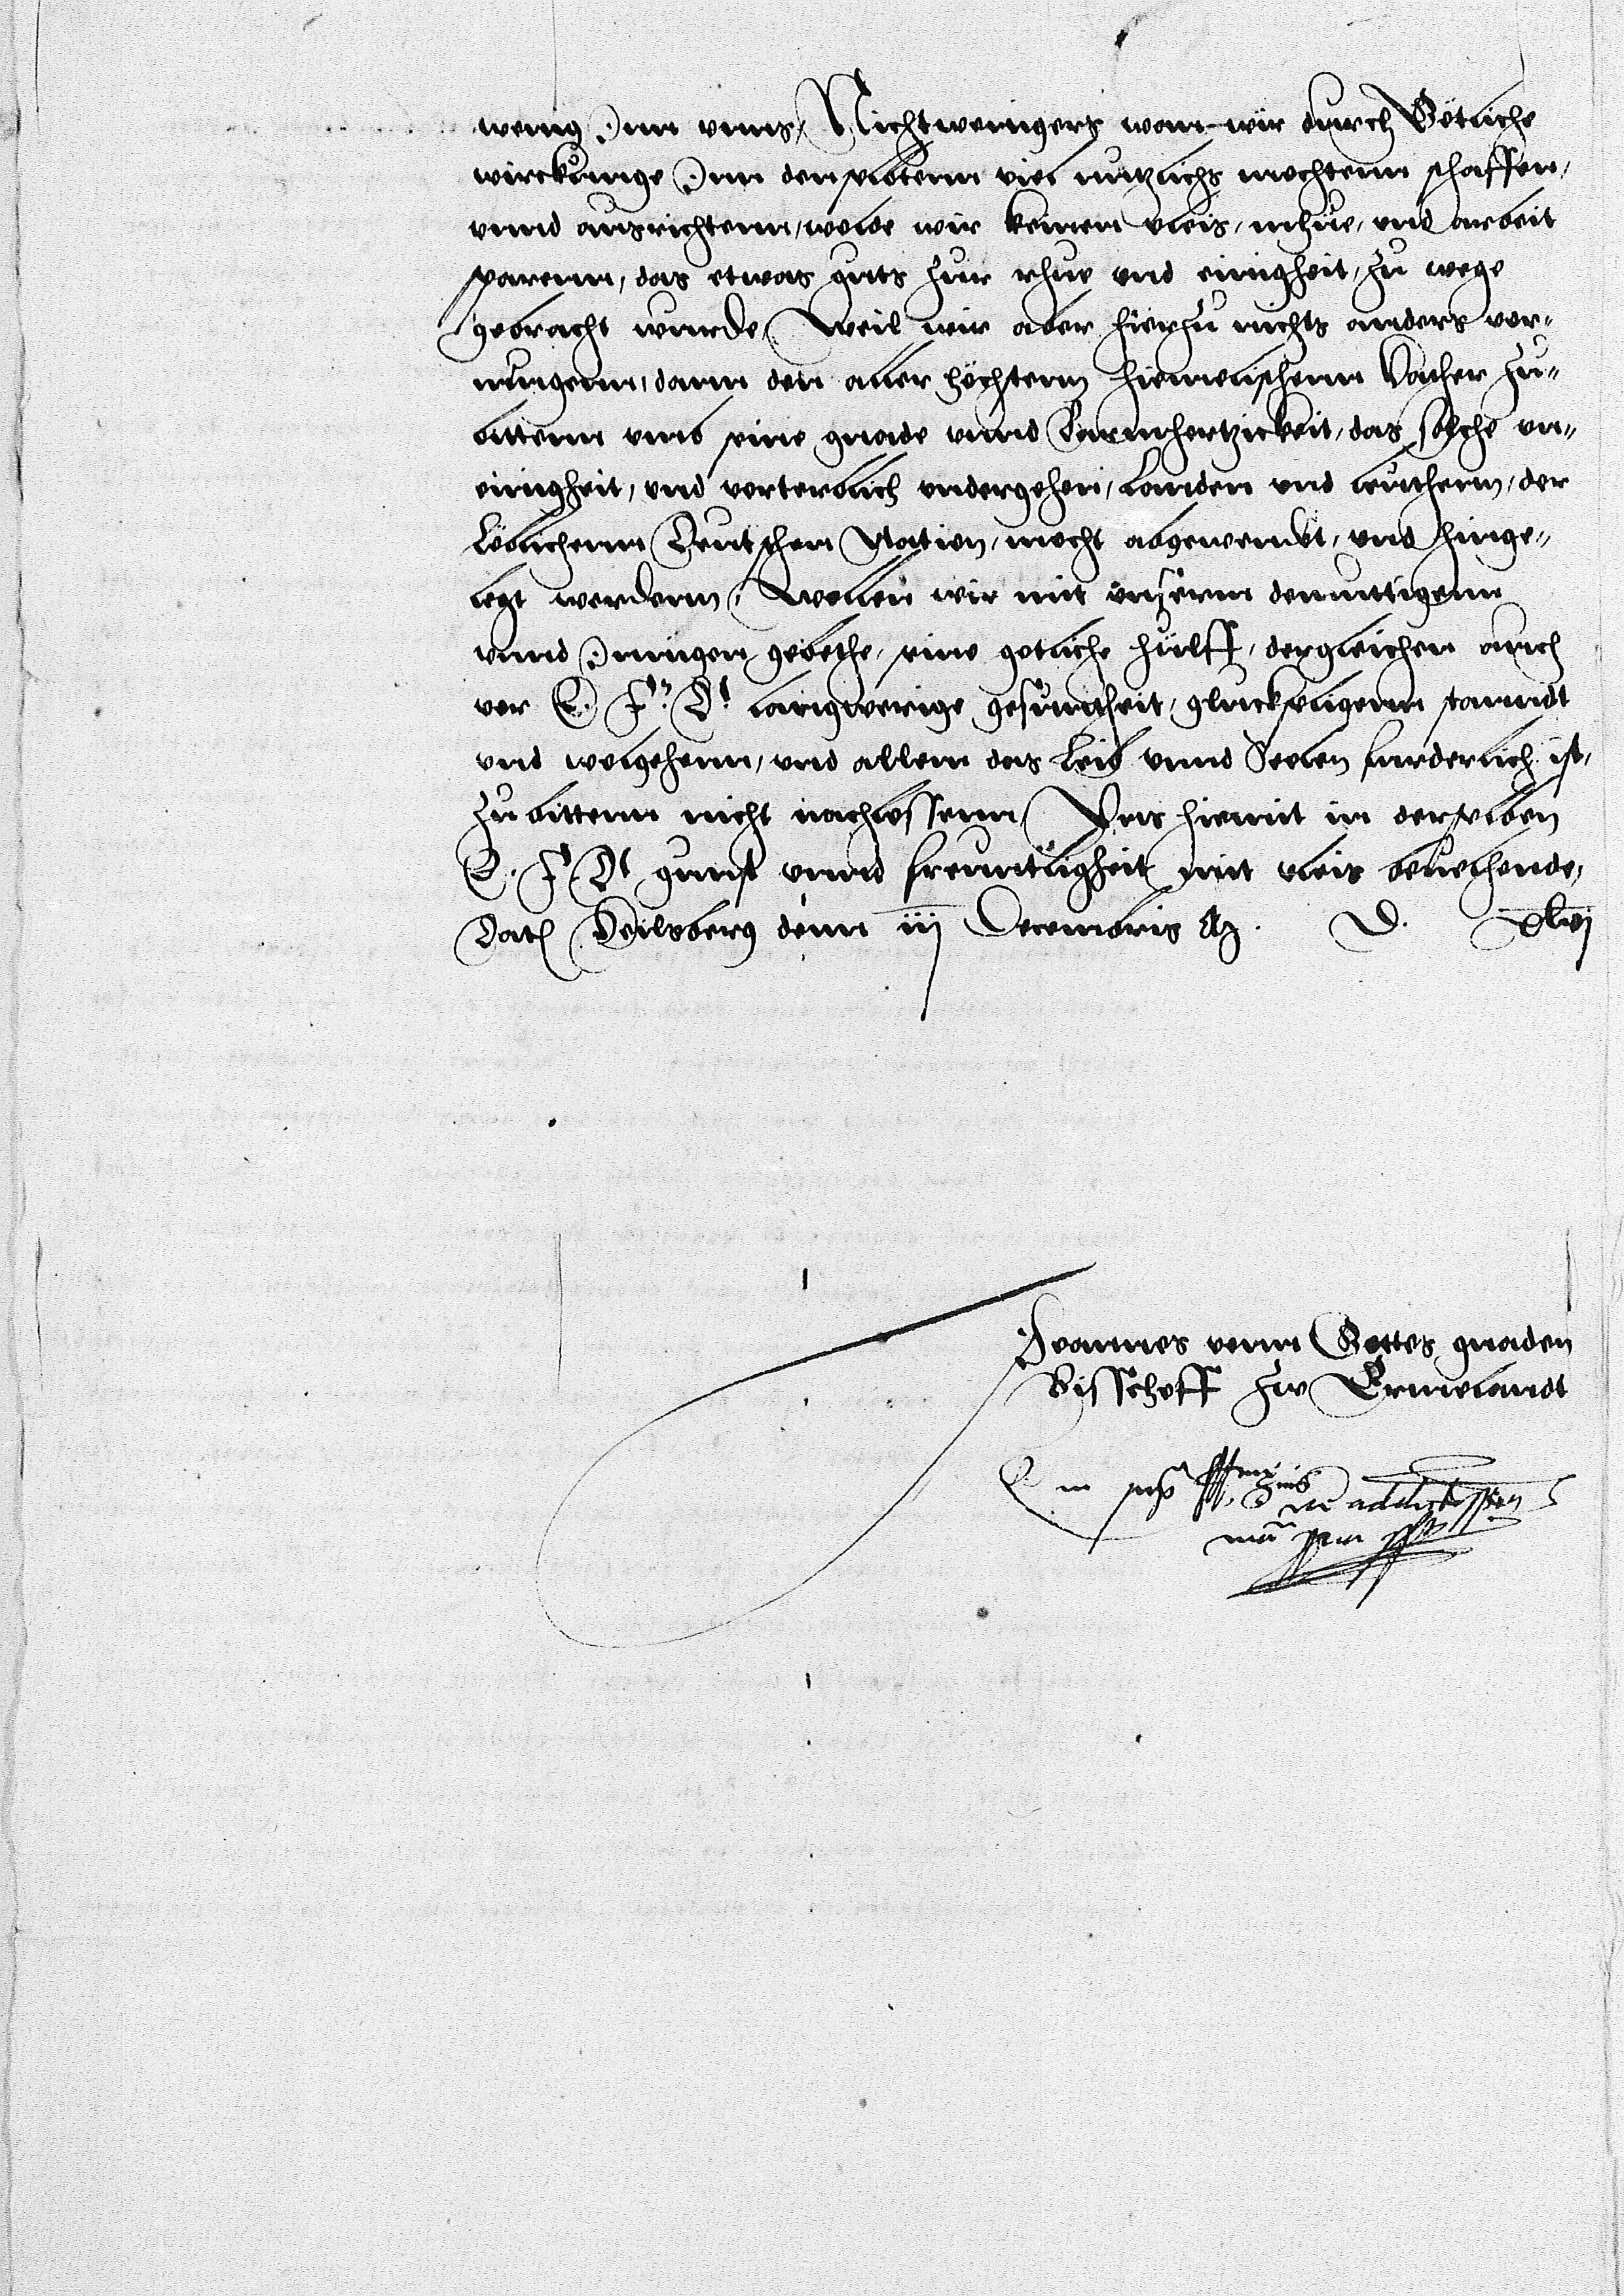 wenig Inn unns, Nichtwenigers wan wir durch Götliche
wirckunge Inn denselbtenn viel nutzlichs mochtenn schaffen,
unnd ausrichtenn, wolde wir keinen vleis, mhüe, und arbeit
sparenn, das etwas guts zur rhue und einigheit, zu wege
gebracht wurde, Weil wir aber hierzu nichts anders ver„
mugenn, dann den aller höchstenn himelischenn Vather zu„
bittenn umb seine gnade unnd Barmhertzickeit, das solche un„
einigheit, und verterblich undergehen, Landen und leuthenn, der
Löblichenn Deutschen Nation, mocht abgewendt, und hinge„
legt werdenn, Wollen wir mit unserm demuttigenn
unnd Innigen gebethe, seine gotliche hülff, dergleichen auch
vor E. F. D. langwerige gesuntheit, gluckseligenn stanndt
und wolgehenn, und allem das Leib unnd Seelen furderlich ist,
zu bittenn nicht nachlossenn, Uns hiemit in derselben
E. F. D. gunst unnd freuntligheit mit vleis bevehende,
Dat Heilsberg denn iij Decembris A. D. xlvi
Joannes vonn Gottes gnaden
Bisschoff zw Ermelandt